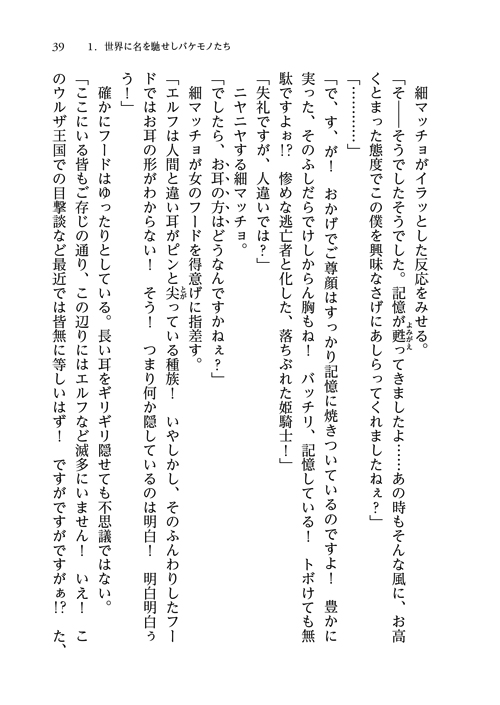 39　1．世界に名を馳せしバケモノたち
　細マッチョがイラッとした反応をみせる。
「そ――そうでしたそうでした。記憶が甦ってきましたよ……あの時もそんな風に、お高
くとまった態度でこの僕を興味なさげにあしらってくれましたねぇ？」
「…………」
「で、す、が！　おかげでご尊顔はすっかり記憶に焼きついているのですよ！　豊かに
実った、そのふしだらでけしからん胸もね！　バッチリ、記憶している！　トボけても無
駄ですよぉ!?　惨めな逃亡者と化した、落ちぶれた姫騎士！」
「失礼ですが、人違いでは？」
　ニヤニヤする細マッチョ。
「でしたら、お耳の方はどうなんですかねぇ？」
　細マッチョが女のフードを得意げに指差す。
「エルフは人間と違い耳がピンと尖っている種族！　いやしかし、そのふんわりしたフー
ドではお耳の形がわからない！　そう！　つまり何か隠しているのは明白！　明白明白ぅ
う！」
　確かにフードはゆったりとしている。長い耳をギリギリ隠せても不思議ではない。
「ここにいる皆もご存じの通り、この辺りにはエルフなど滅多にいません！　いえ！　こ
のウルザ王国での目撃談など最近では皆無に等しいはず！　ですがですがですがぁ!?　た、